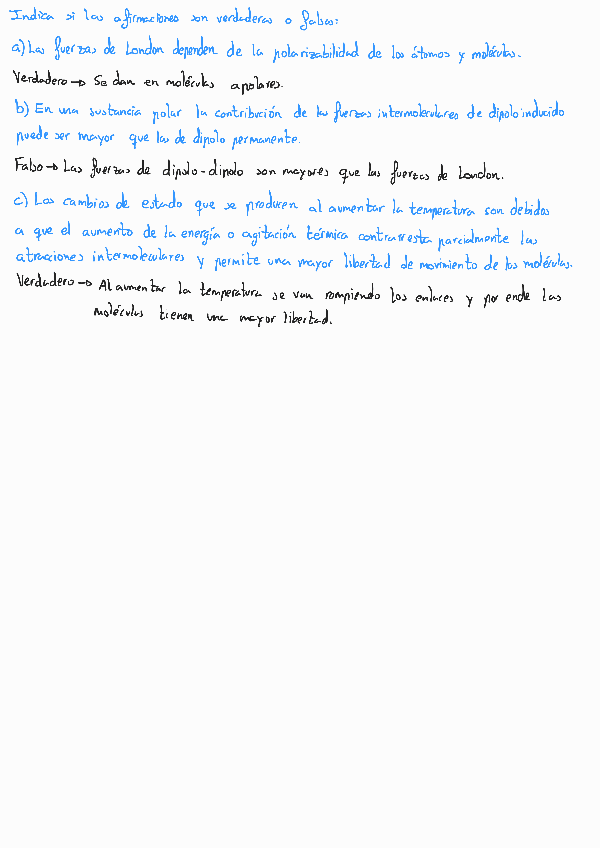 Indica si las afirmaciones son verdaderas o falsas:
a) Las fuerzas de London dependen de la polarizabilidad de los átomos y moléculas.
Verdadero → Se dan en moléculas apolares.
b) En una sustancia polar la contribución de las fuerzas intermoleculares de dipolo inducido
puede ser mayor que las de dipolo permanente.
Falso → Las fuerzas de dipolo-dipolo son mayores que las fuerzas de London.
c) Los cambios de estado que se producen al aumentar la temperatura son debidos
a que el aumento de la energía o agitación térmica contrarresta parcialmente las
atracciones intermoleculares y permite una mayor libertad de movimiento de las moléculas.
Verdadero → Al aumentar la temperatura se van rompiendo los enlaces y por ende las
moléculas tienen una mayor libertad.